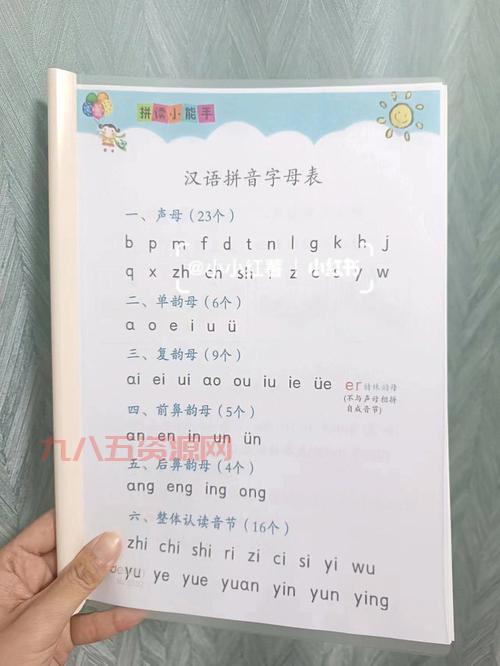 拼读小能手
汉语拼音字母表
一、声母（23个）
b p m f d t n l g k h j
q x zh ch sh r z c s y w
@小小红薯 小红书
二、单韵母（6个）
ɑ o e i u ü
三、复韵母（9个）
ɑi ei ui ɑo ou iu ie üe er 特殊韵母
(不与声母相拼
自成音节)
四、前鼻韵母（5个）
ɑn en in un ün
九八五资源网
五、后鼻韵母（4个）
ɑng eng ing ong
六、整体认读音节（16个）
zhi chi shi ri zi ci si yi wu
yu ye yue yuɑn yin yun ying